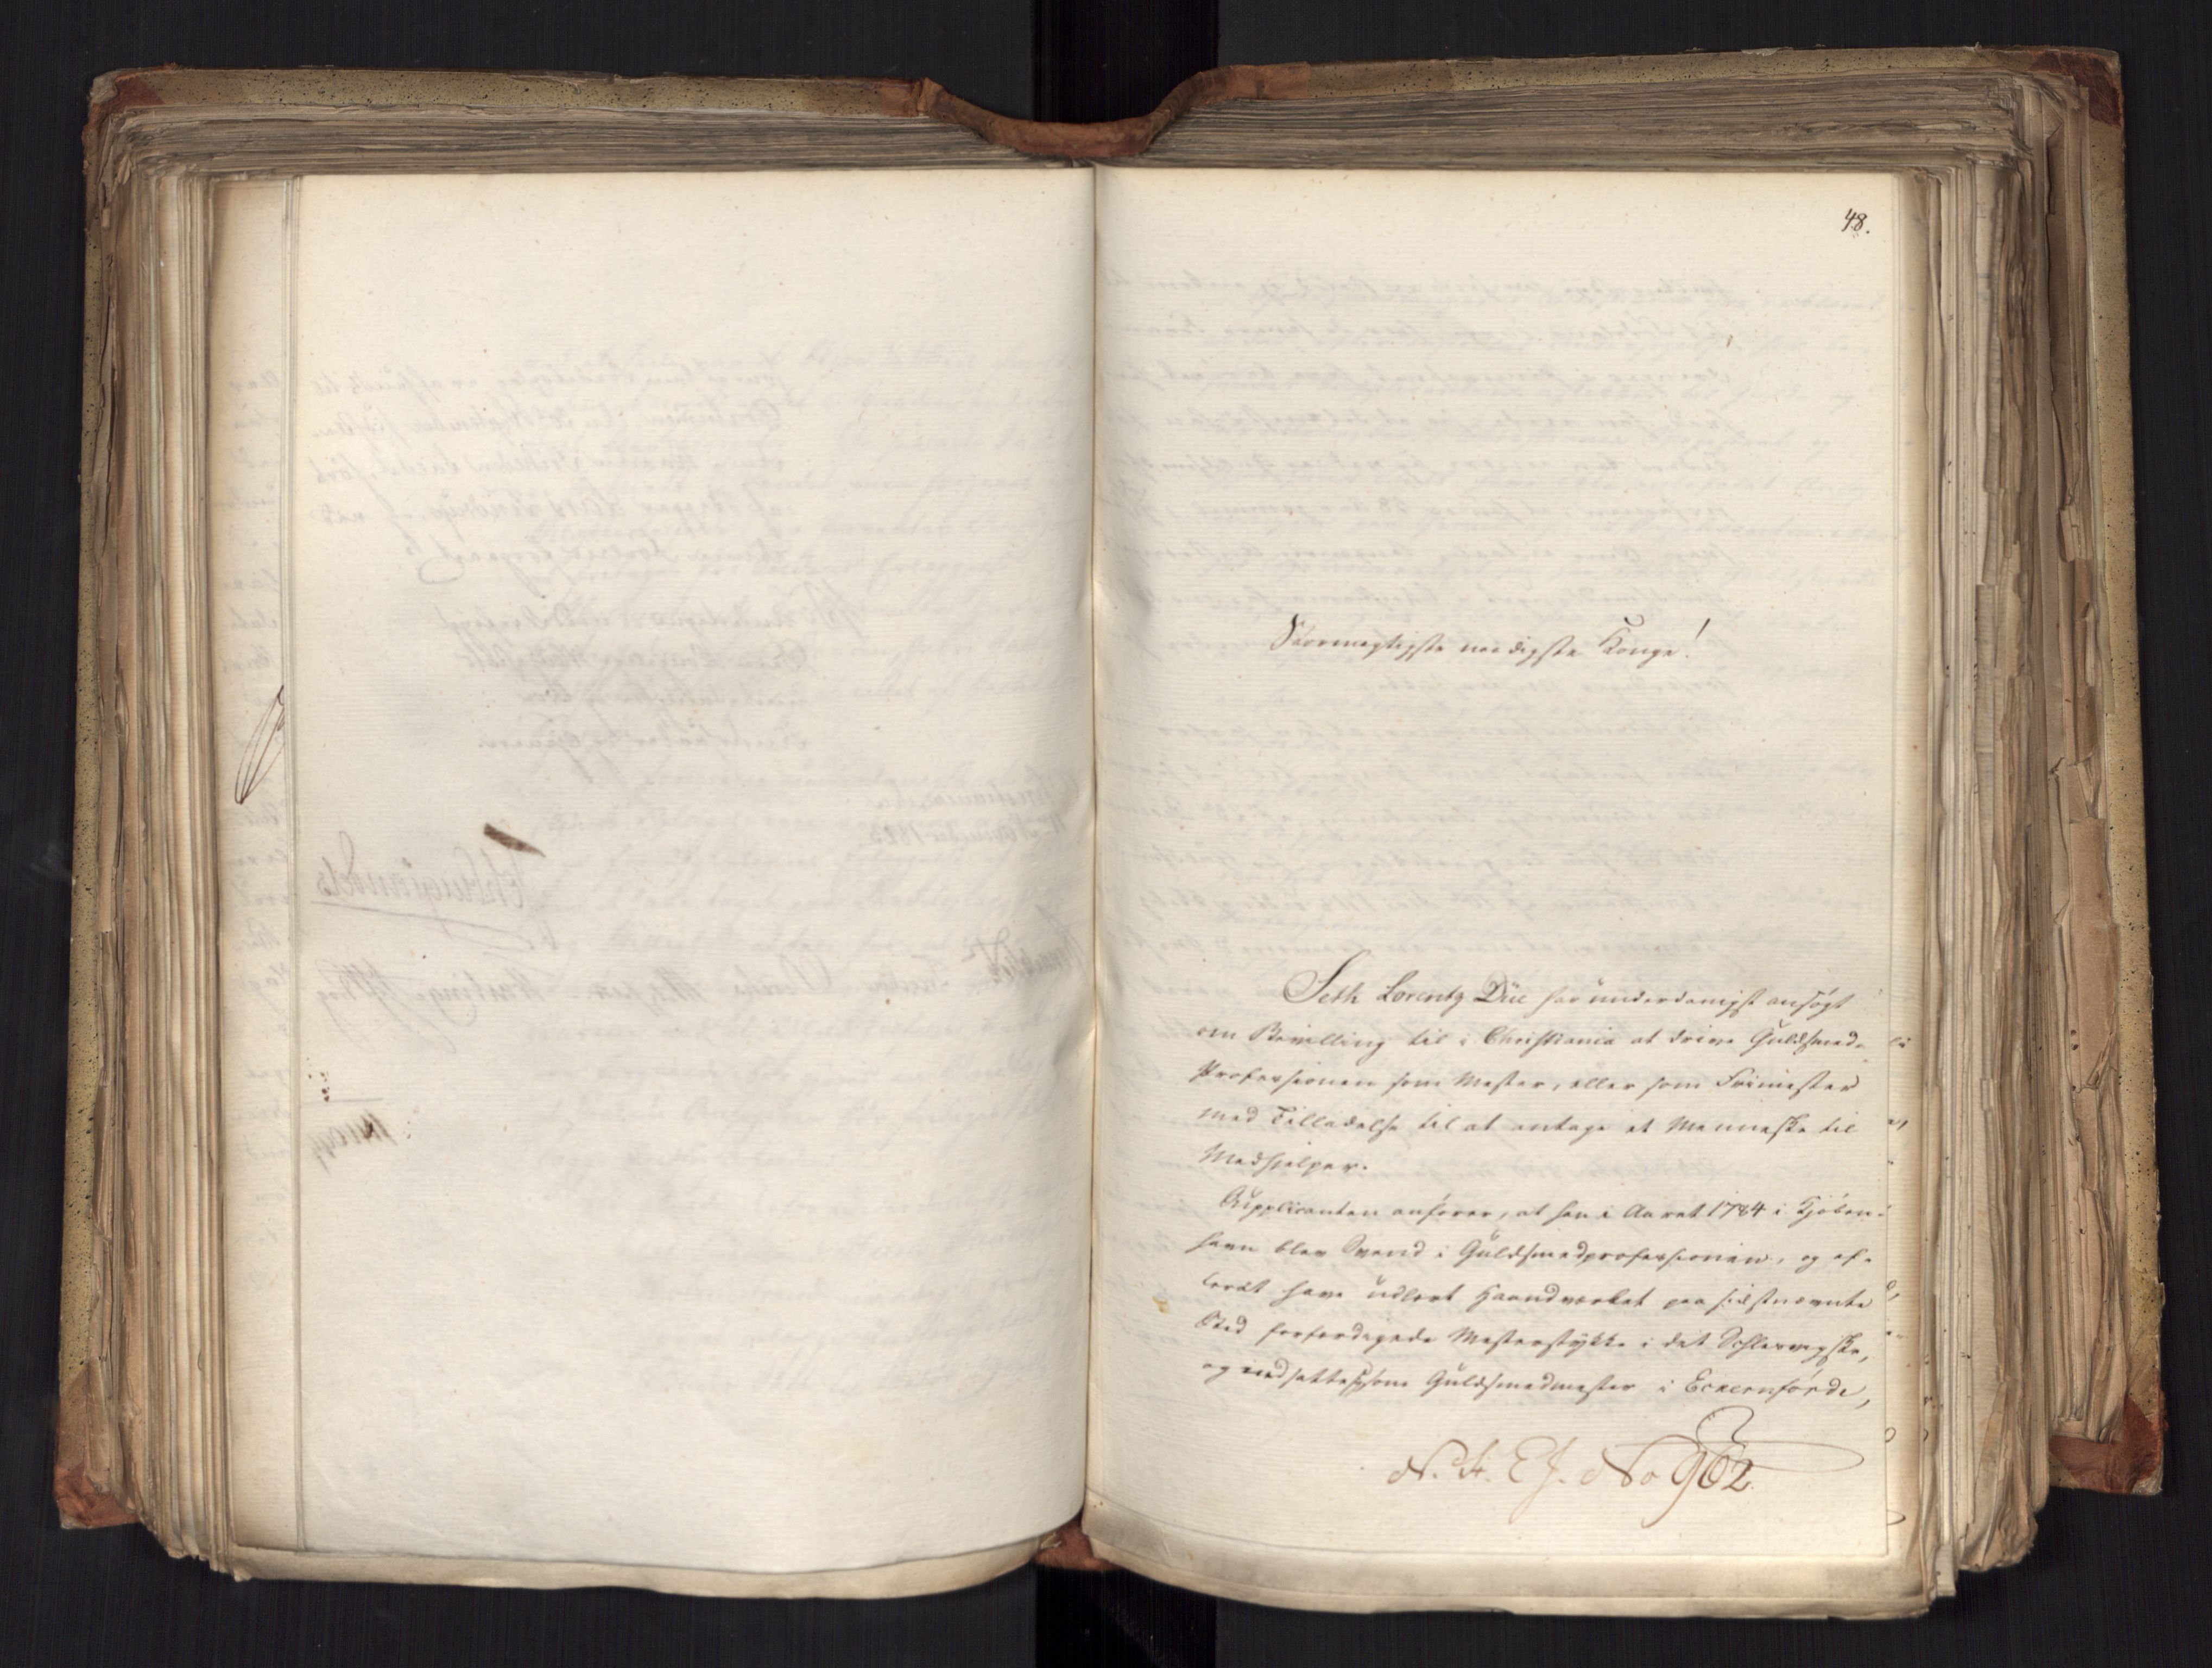 48.
Stormægtigste naadigste Konge!
Seth Lorentz Düe har underdanigst ansögt
om Bevilling til i Christiania at drive Guldsmed-
Professionen som Mester, eller som Frimester
med Tilladelse til at antage et Menneske til
Medhjelper.
Supplicanten anförer, at han i Aaret 1784 i Kjöben-
havn blev Svend i Guldsmedprofessionen, og ef-
terat have udlært Haandværket paa sidstnævnte
Sted forfærdigede Mesterstykke i det Schlesvigske,
og nedsatte sig som Guldsmedmester i Eckernförde,
N. St. E J. No 962.